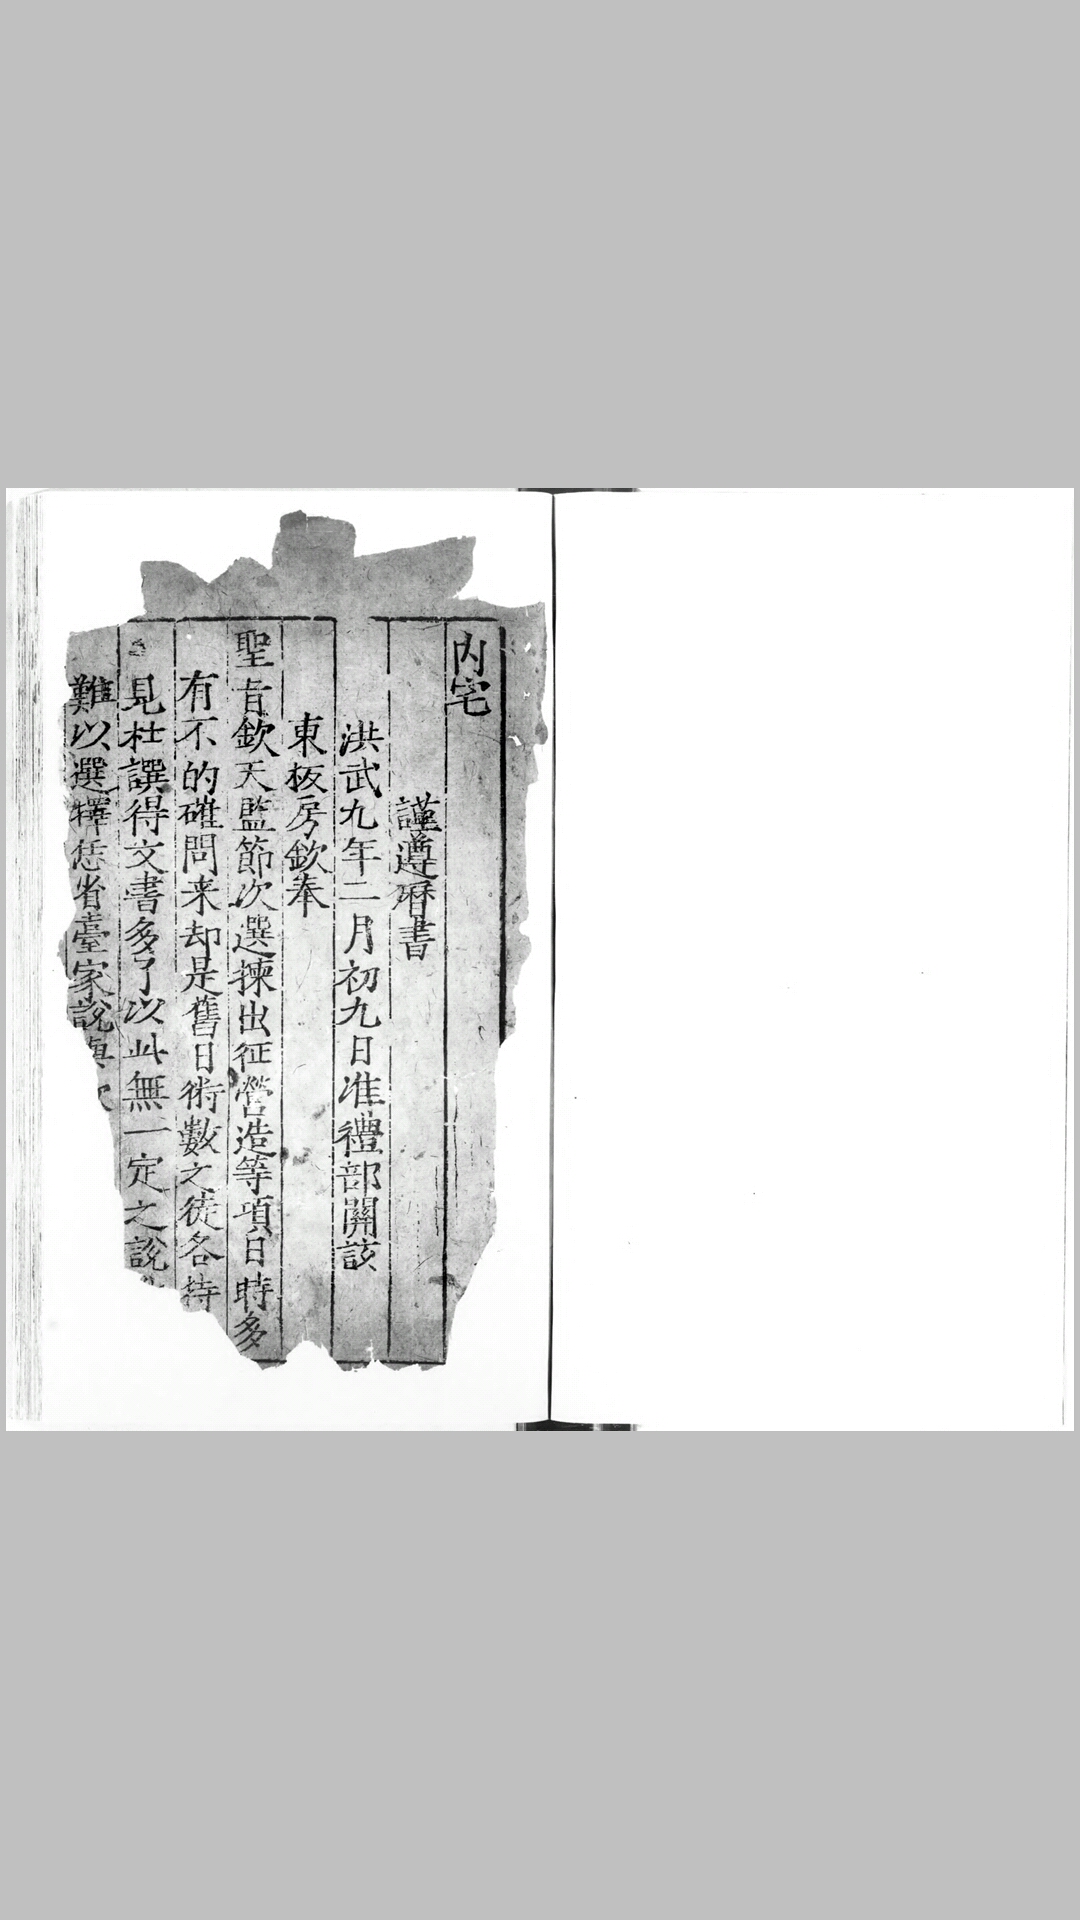 内宅
謹遵曆書
洪武九年二月初九日准禮部關該
東板房欽奉
聖旨欽天監節次選揀出征營造等項日時多
有不的確問来却是舊日術數之徒各持
見杜譔得文書多了以此無一定之說
難以選擇恁省臺家說與